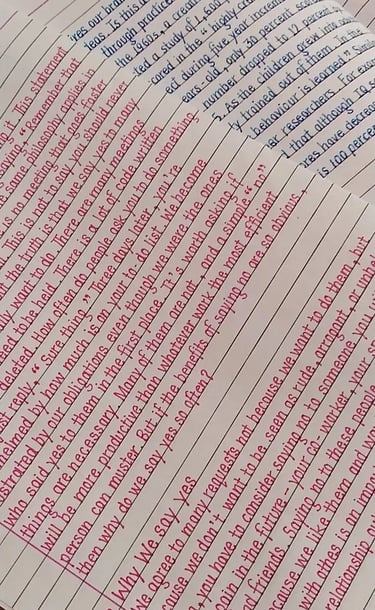 ives our brain
deas. Is this a
through practice
the 1960s, a creativ
ted a study of 1,600
scored in the "highly cre
ed during five-year incremen
ears-old, only 30 percent scored
number dropped to 12 percent
5. As the children grew into adu
ly trained out of them. In the
behaviour is learned." Simil
er researchers. For example
d that although IQ sc
ores have decrea
is 100 percent
it." This statement
saying, "Remember that
same philosophy applies in
is no meeting that goes faster
This is not to say you should never
The truth is that we say yes to many
ly want to do. There are many meetings
need to be held. There is a lot of code written
deleted. How often do people ask you to do something
reply, "Sure thing." Three days later, you're
whelmed by how much is on your to-do list. We become
ustrated by our obligations even though we were the ones
who said yes to them in the first place. It's worth asking if
things are necessary. Many of them are not, and a simple "no"
will be more productive than whatever work the most efficient
person can muster. But if the benefits of saying no are so obvious,
then why do we say yes so often?
Why We Say Yes
We agree to many requests not because we want to do them, but
cause we don't want to be seen as rude, arrogant, or unhe
n you have to consider saying no to someone you
gain in the future—your co-worker, your
nd friends. Saying no to these people
cause we like them and we
with others is an im
relationship out